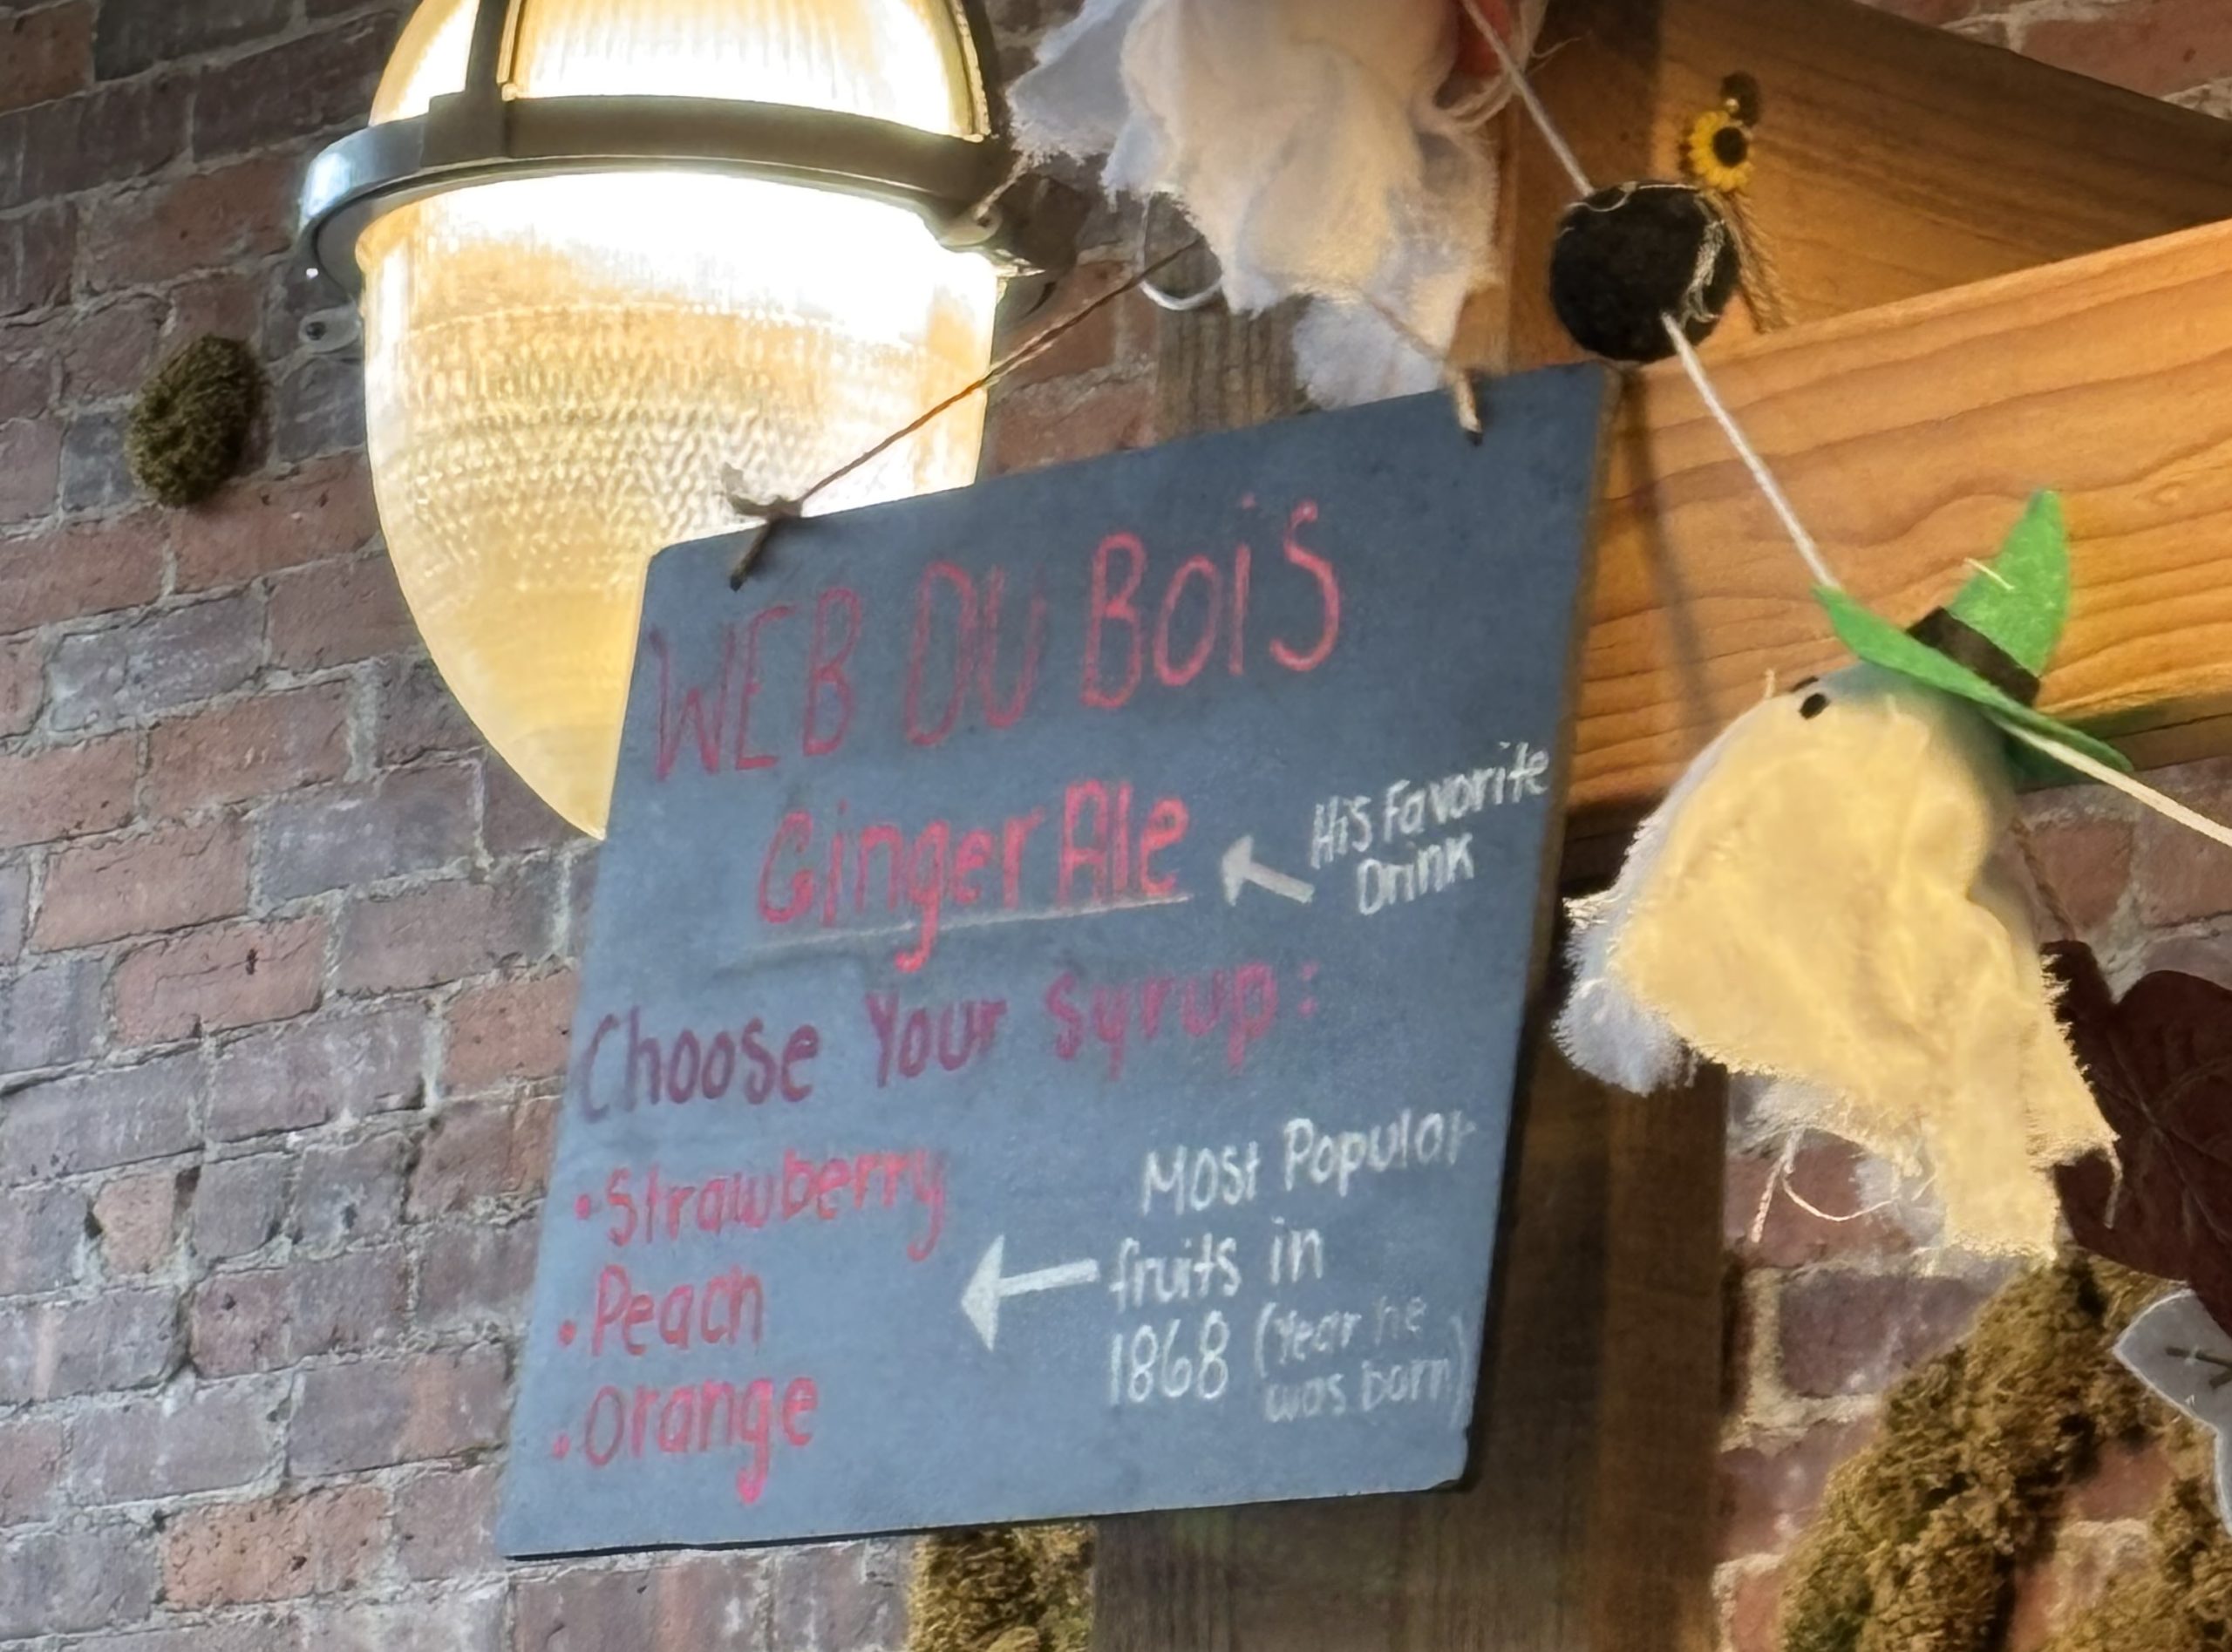 WEB DU BOiS
Ginger Ale
His Favorite
Drink
Choose Your Syrup:
• Strawberry
• Peach
• Orange
Most Popular
fruits in
1868 (Year he
was born)